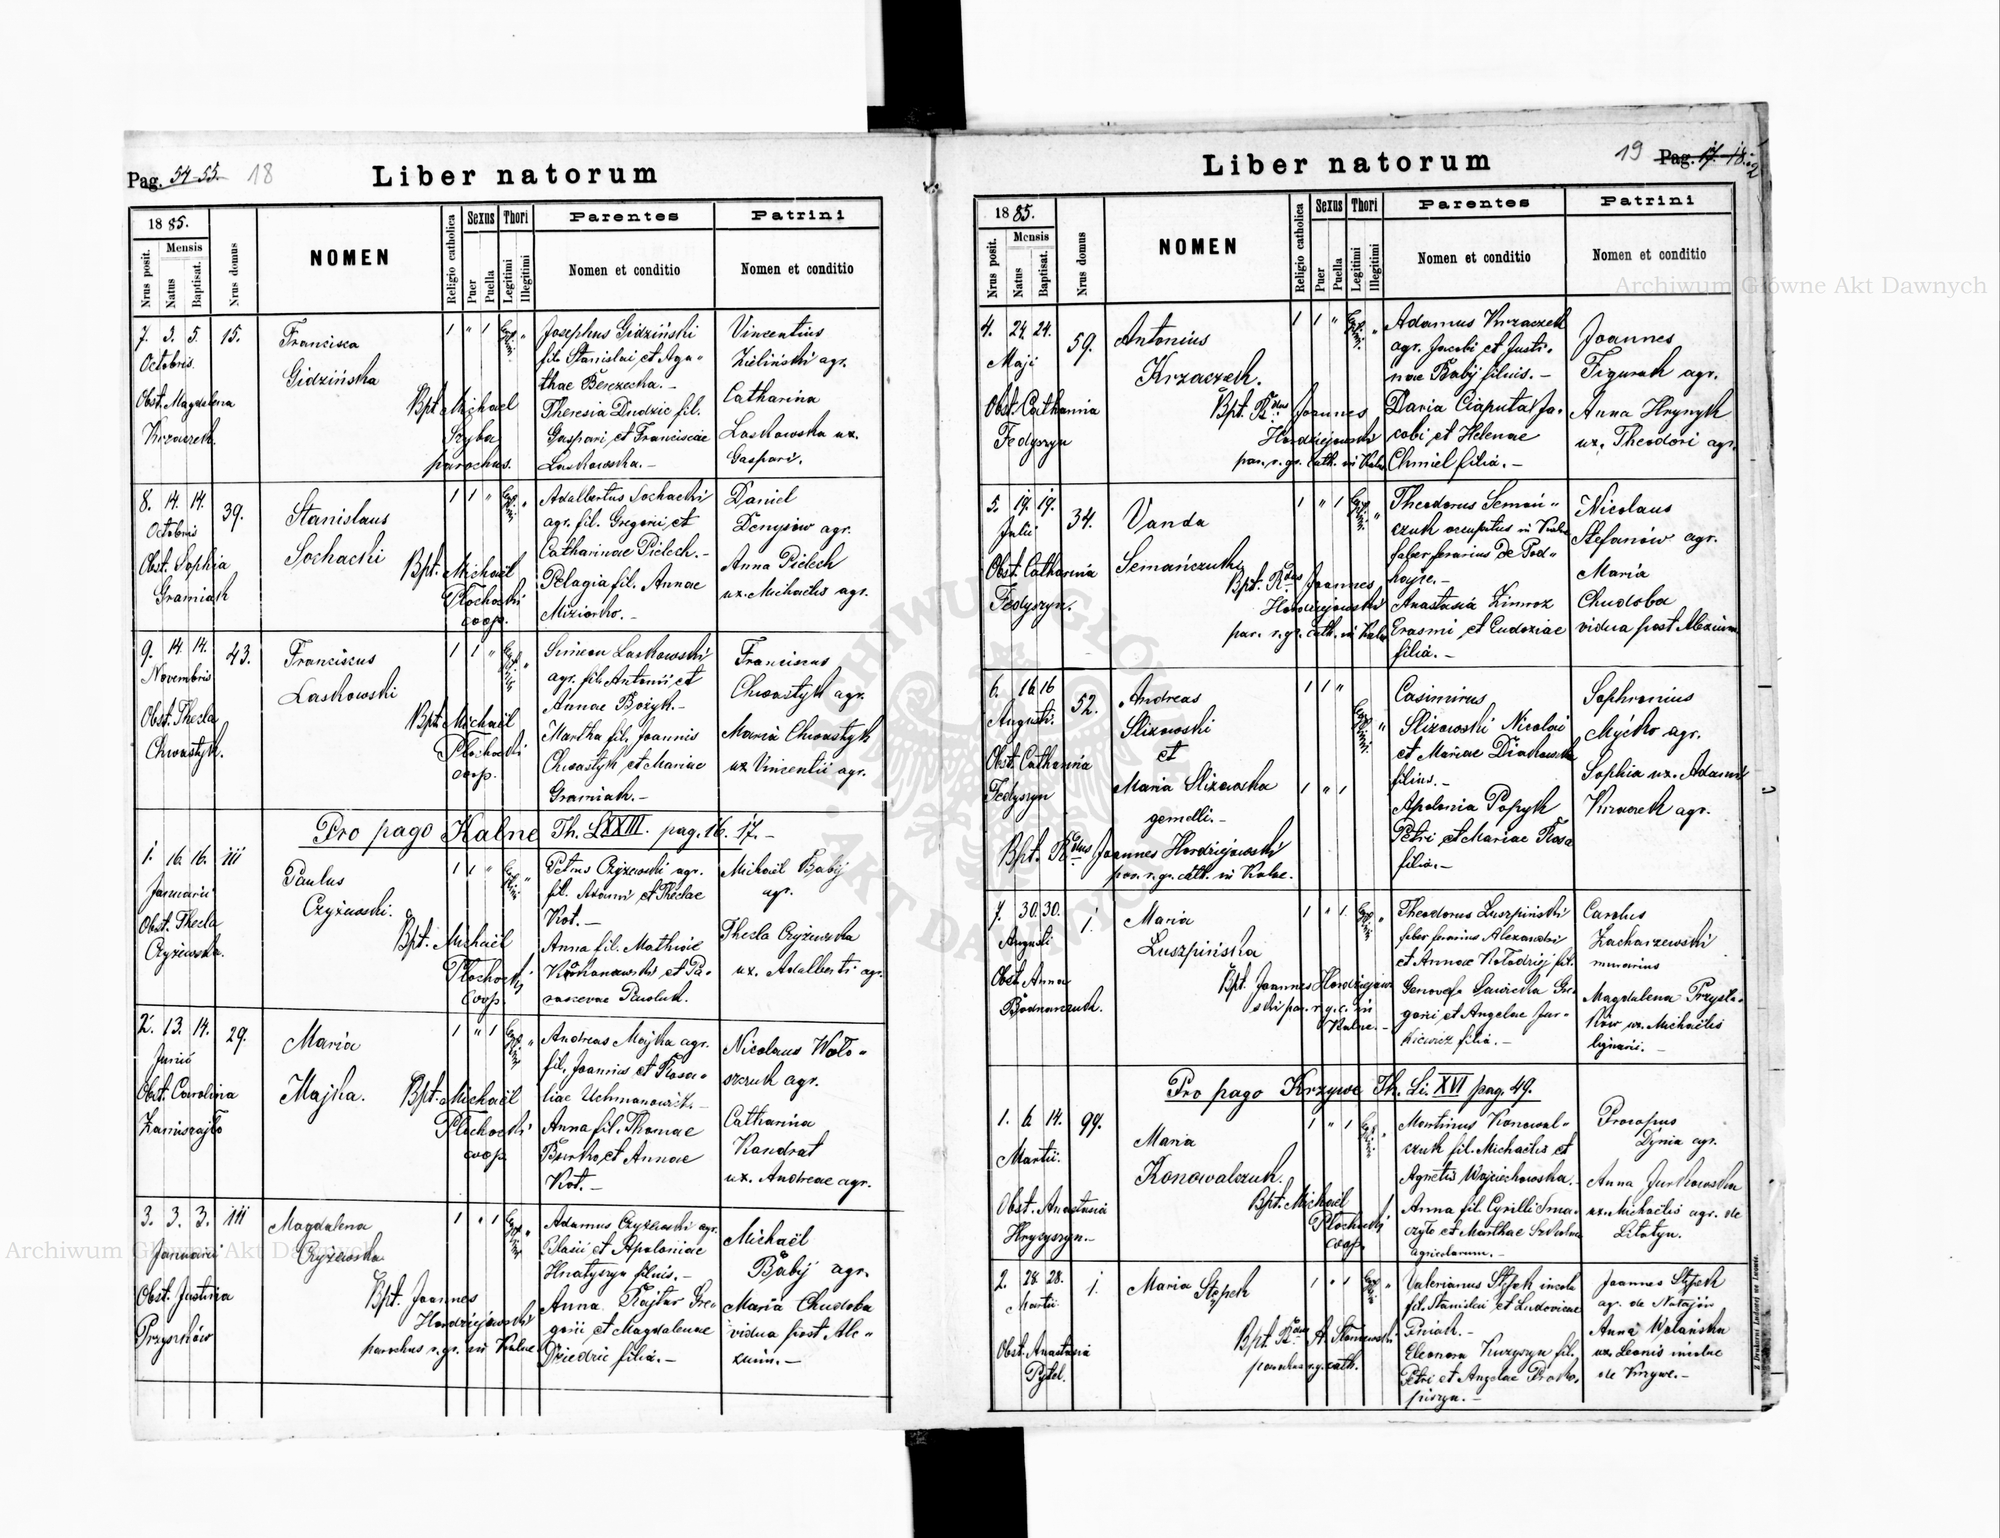 Pag. 54-55. 18
Liber natorum
1885.
Nrus posit.
Mensis
Natus
Baptisat.
Nrus domus
NOMEN
Religio catholica
Sexus
Puer
Puella
Thori
Legitimi
Illegitimi
Parentes
Nomen et conditio
Patrini
Nomen et conditio
7. 3. 5. 15.
Octobris
Obst. Magdalena
Krzaczek
Francisca
Gidzińska
Bpt. Michael
Szyba
parochus.
1 " 1 "
Josephus Gidziński
fil. Stanislai et Aga-
thae Berezecka.-
Theresia Dudzic fil.
Gaspari et Franciscae
Laskowska.-
Vincentius
Zieliński agr.
Catharina
Laskowska ux.
Gaspari.
8. 14. 14. 39.
Octobris
Obst. Sophia
Gramiak
Stanislaus
Sochacki
Bpt. Michaël
Płochocki
coop.
1 1 " "
Adalbertus Sochacki
agr. fil. Gregorii et
Catharinae Pielech.-
Pelagia fil. Annae
Miziorko.-
Daniel
Denysów agr.
Anna Pielech
ux. Michaelis agr.
9. 14 14. 43.
Novembris
Obst. Thecla
Chwastyk.
Franciscus
Laskowski
Bpt. Michaël
Płochocki
coop.
1 1 " "
Simeon Laskowski
agr. fil. Antonii et
Annae Bożyk.-
Martha fil. Joannis
Chwastyk et Mariae
Gramiak.-
Franciscus
Chwastyk agr.
Maria Chwastyk
ux Vincentii agr.
Pro pago Kalne Th. LXXIII. pag. 16. 17.-
1. 16. 16. 111
Januarii
Obst. Thecla
Czyżewska.
Paulus
Czyżewski.
Bpt. Michaël
Płochocki
coop.
1 1 " "
Petrus Czyżewski agr.
fil. Adami et Theclae
Kot.-
Anna fil. Mathiae
Kochanowski et Pa-
rascevae Pawluk.
Michaël Babij
agr.
Thecla Czyżewska
ux. Adalberti agr.
2. 13. 14. 29.
Junii
Obst. Carolina
Maria
Majka.
Bpt. Michaël
Płochocki
coop.
1 " 1 "
Andreas Majka agr.
fil. Joannis et Rosa-
liae Uchmanowicz.-
Anna fil. Thomae
et Annae
Kot.-
Nicolaus Woło-
szczuk agr.
Catharina
Kondrat
ux. Andreae agr.
3. 3. 3. 111
Januarii
Obst. Justina
Przyszlaków
Magdalena
Czyżewska
Bpt. Joannes
Hordziejowski
parochus r. gr. in Kalne
1 " 1 "
Adamus Czyżewski agr.
Blasii et Apoloniae
Hnatyszyn filius.-
Anna Rajtar Gre-
gorii et Magdalenae
Dziedzic filia.-
Michaël
Babij agr.
Maria Chudoba
vidua post Ale-
xium.-
19 Pag. 17. 18.
Liber natorum
1885.
Nrus posit.
Mensis
Natus
Baptisat.
Nrus domus
NOMEN
Religio catholica
Sexus
Puer
Puella
Thori
Legitimi
Illegitimi
Parentes
Nomen et conditio
Patrini
Nomen et conditio
4. 24. 24. 59.
Maji
Obst. Catharina
Fedyszyn
Antonius
Krzaczek.
Bpt. Rdus Joannes
Hordziejowski
par. r. gr. cath. in Kalne
1 1 " "
Adamus Krzaczek
agr. Jacobi et Justi-
nae Babij filius.-
Daria Ciaputa Ja-
cobi et Helenae
Chmiel filia.-
Joannes
Figurak agr.
Anna Hrynyk
ux. Theodori agr.
5. 19. 19. 34.
Julii
Obst. Catharina
Fedyszyn.
Vanda
Semańczuk
Bpt. Rdus Joannes
Hordziejowski
par. r. gr. cath. in Kalne
1 " 1 "
Theodorus Semań-
czuk occupatus in Kalne
faber ferarius de Pod-
hajce.-
Anastasia Zimroz
Erasmi et Eudoxiae
filia.-
Nicolaus
Stefanów agr.
Maria
Chudoba
vidua post Alexium
6. 16. 16 52.
Augusti.
Obst. Catharina
Fedyszyn
Andreas
Slizowski
et
Maria Slizowska
gemelli.-
Bpt. Rdus Joannes Hordziejowski
par. r. gr. cath. in Kalne.
1 1 "
"
1 " 1
Casimirus
Slizowski Nicolai
et Mariae Diakowska
filius.-
Apolonia Popyk
Petri et Mariae Kosa
filia.-
Sophronius
Mycko agr.
Sophia ux. Adami
Krzaczek agr.
7. 30. 30. 1.
Augusti
Obst. Anna
Bodnarczuk.
Maria
Łuszpińska
Bpt. Joannes Hordziejow-
ski par. r. g. c. in
Kalne.-
1 " 1. "
Theodorus Łuszpiński
faber ferarius Alexandri
et Annae Kołodziej fil.
Genovefa Sawicka Gre-
gorii et Angelae Jur-
kiewicz filia.-
Carolus
Zacharzewski
murarius
Magdalena Przyszla-
ków ux. Michaëlis
lignarii.-
Pro pago Krzywe Th. Li. XVI pag. 49.
1. 6. 14. 99.
Martii.
Obst. Anastasia
Hryszyn.-
Maria
Konowalczuk.
Bpt. Michaël
Płochocki
coop.
1 " 1 "
Martinus Konowal-
czuk fil. Michaëlis et
Agnetis Wojciechowska.
Anna fil. Cyrilli Sma-
czyło et Marthae Szkolna
agricolarum.-
Procopius
Dynia agr.
Anna Jurkowska
ux. Michaëlis agr. de
Litatyn.
2. 28. 28. 1.
Martii
Obst. Anastasia
Pytel.
Maria Stępek
Bpt. Rdus A.
parochus r. g. cath.
1 " 1 "
Valerianus Stępek incola
fil. Stanislai et Ludovicae
Pniak.-
Eleonora Kuzyszyn fil.
Petri et Angelae Proko-
piszyn.-
Joannes Stępek
agr. de
Anna Wolańska
ux. Leonis incolae
de Krzywe.-
Z Drukarni Ludowej we Lwowie.
Archiwum Główne Akt Dawnych
Archiwum Główne Akt Dawnych
ARCHIWUM GŁÓWNE AKT DAWNYCH